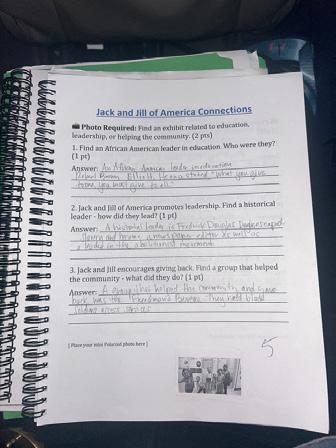 Jack and Jill of America Connections
Photo Required: Find an exhibit related to education,
leadership, or helping the community. (2 pts)
1. Find an African American leader in education. Who were they?
(1 pt)
Answer: An African American leader in education
Robert Brown Elliott. He once stated "What you give
to one you must give to all."
2. Jack and Jill of America promotes leadership. Find a historical
leader - how did they lead? (1 pt)
Answer: A historical leader is Fredrick Douglas
slavery and became a newspaper editor as well as
a leader in the abolitionist movement
3. Jack and Jill encourages giving back. Find a group that helped
the community - what did they do? (1 pt)
Answer: A group that helped the community and gave
back was the Freedman's Bureau. They held black
[ Place your mini Polaroid photo here ]
5